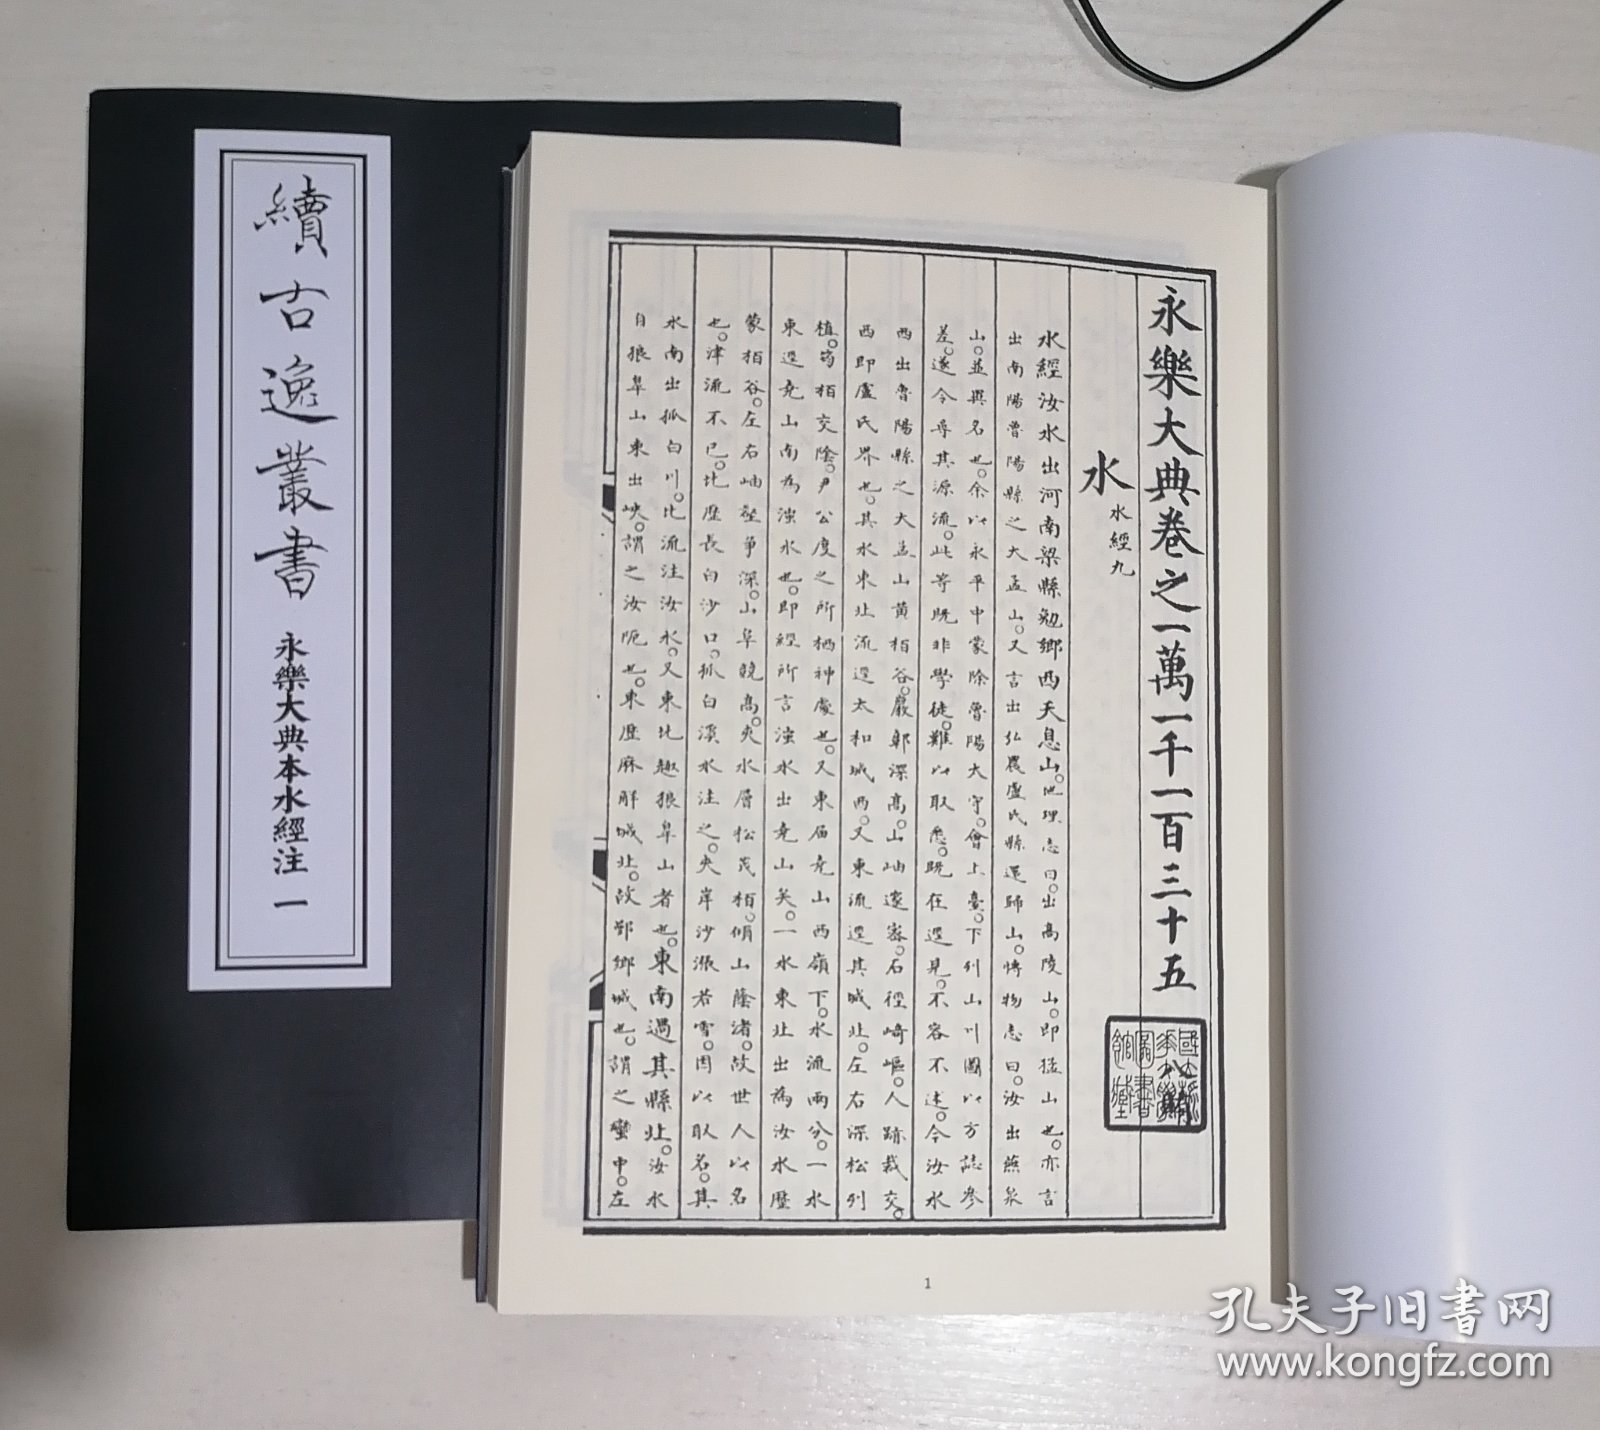 續古逸叢書
永樂大典本水經注 一
永樂大典卷之一萬一千一百三十五
水 水經九
水經汝水出河南梁縣勉鄉西天息山。地理志曰。出高陵山。即猛山也。亦言
出南陽魯陽縣之大孟山。又言出弘農盧氏縣還歸山。博物志曰。汝出燕泉
山。並異名也。余以永平中蒙除魯陽太守。會上臺。下列山川圖。以方誌參
差。遂令尋其源流。此等既非學徒。難以取悉。既在遥見。不容不述。今汝水
西出魯陽縣之大盂山黄柏谷。巖鄣深高。山岫邃密。石徑崎嶇。人跡裁交。
西即盧氏界也。其水東北流逕太和城西。又東流逕其城北。左右深松列
植。筠柏交陰。尹公度之所栖神處也。又東屆堯山西嶺下。水流兩分。一水
東逕堯山南為滍水也。即經所言滍水出堯山矣。一水東北出為汝水歷
蒙柏谷。左右岫壑爭深。山阜競高。夾水層松茂柏。傾山蔭渚。故世人以名
也。津流不已。北歷長白沙口。狐白溪水注之。夾岸沙漲若雪。因以取名。其
水南出狐白川。北流注汝水。又東北趣狼皋山者也。東南過其縣北。汝水
自狼皋山東出峽。謂之汝阨也。東歷麻解城北。故鄤鄉城也。謂之蠻中。左
1
孔夫子旧书网
www.kongfz.com